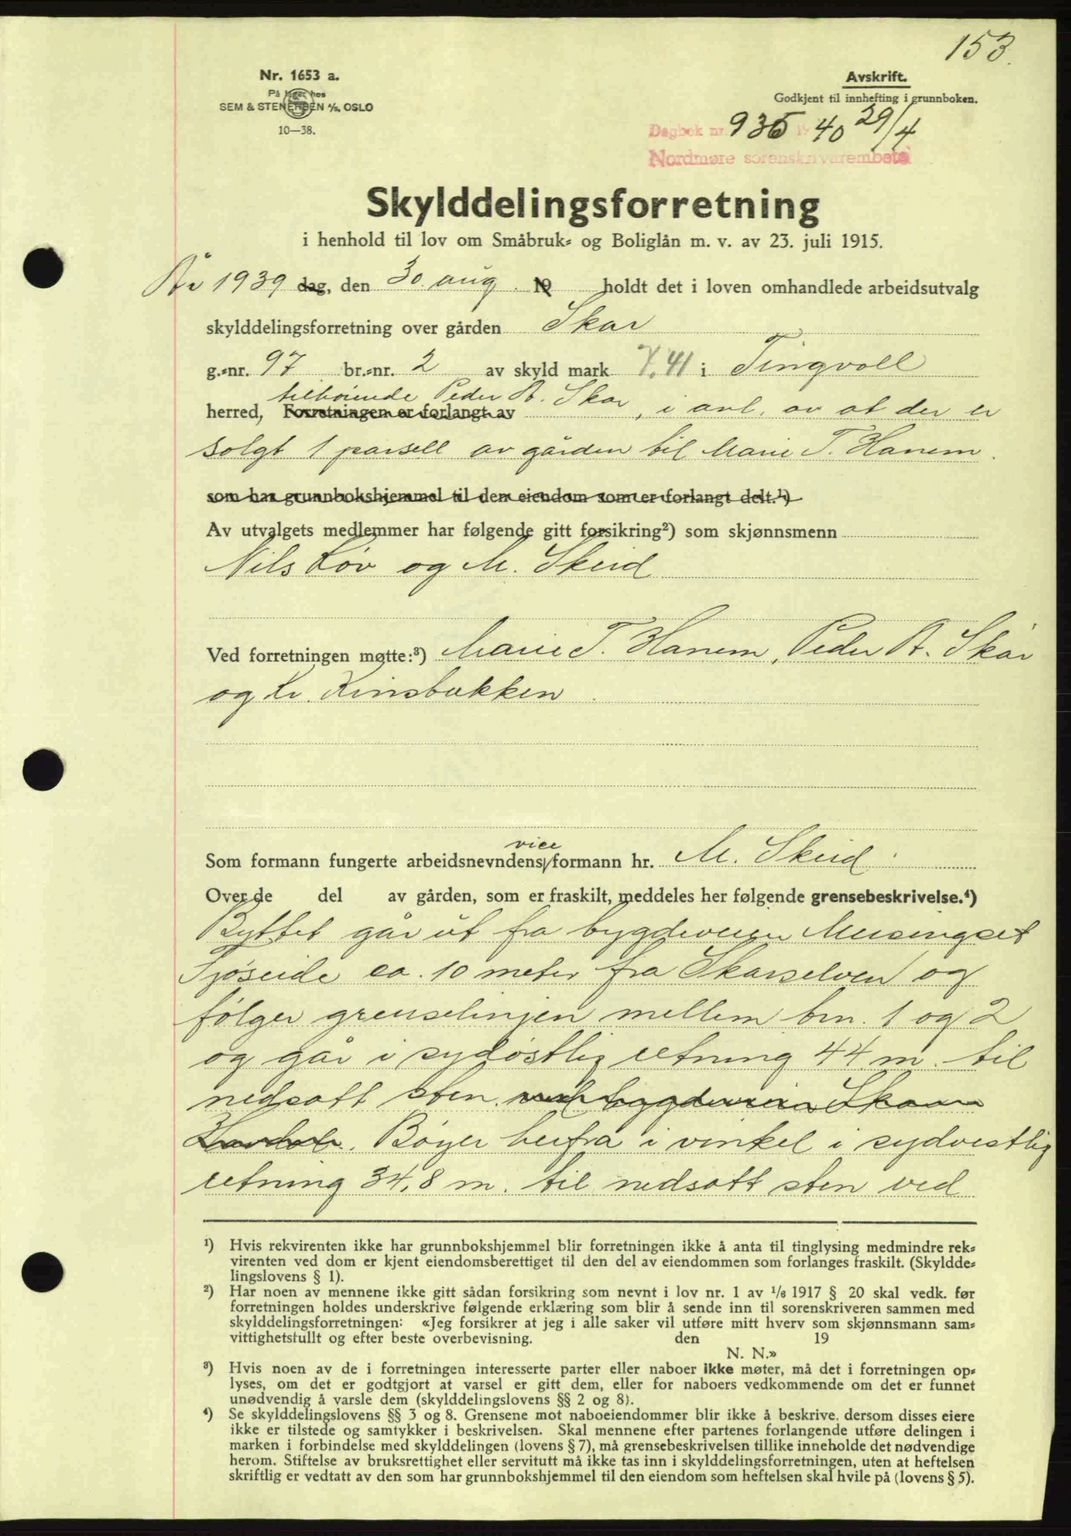 153.
Nr. 1653 a.
På lager hos
SEM & STENERSEN A/S, OSLO
10—38.
Avskrift.
Godkjent til innhefting i grunnboken.
Dagbok nr. 935 19 40 29/4
Nordmøre sorenskriverembete
Skylddelingsforretning
i henhold til lov om Småbruk- og Boliglån m. v. av 23. juli 1915.
År 1939 dag, den 30 aug. 19 holdt det i loven omhandlede arbeidsutvalg
skylddelingsforretning over gården Skar
g.-nr. 97 br.-nr. 2 av skyld mark 7,41 i Tingvoll
tilhørende Peder A. Skar, i anl. av at der er
herred, Forretningen er forlangt av
solgt 1 parsell av gården til Marie T. Hanem.
som har grunnbokshjemmel til den eiendom som er forlangt delt.¹)
Av utvalgets medlemmer har følgende gitt forsikring²) som skjønnsmenn
Nils Løv og M. Skeid
Ved forretningen møtte:³) Marie T. Hanem, Peder A. Skar
og Kr. Rinsbakken.
vice
Som formann fungerte arbeidsnevndens formann hr. M. Skeid.
Over de del av gården, som er fraskilt, meddeles her følgende grensebeskrivelse.⁴)
Byttet går ut fra bygdeveien Meisingset
Tjøseide ca. 10 meter fra Skarselven og
følger grenselinjen mellem brn. 1 og 2
og går i sydøstlig retning 44 m. til
nedsatt sten. ved bygdeveien Skar
Bøyer herfra i vinkel i sydvestlig
retning 34,8 m. til nedsatt sten ved
¹) Hvis rekvirenten ikke har grunnbokshjemmel blir forretningen ikke å anta til tinglysing medmindre rek-
virenten ved dom er kjent eiendomsberettiget til den del av eiendommen som forlanges fraskilt. (Skyldde-
lingslovens § 1).
²) Har noen av mennene ikke gitt sådan forsikring som nevnt i lov nr. 1 av 1/6 1917 § 20 skal vedk. før
forretningen holdes underskrive følgende erklæring som blir å sende inn til sorenskriveren sammen med
skylddelingsforretningen: «Jeg forsikrer at jeg i alle saker vil utføre mitt hverv som skjønnsmann sam-
vittighetsfullt og efter beste overbevisning. den 19
N. N.»
³) Hvis noen av de i forretningen interesserte parter eller naboer ikke møter, må det i forretningen op-
lyses, om det er godtgjort at varsel er gitt dem, eller for naboers vedkommende om det er funnet
unødvendig å varsle dem (skylddelingslovens §§ 2 og 8).
⁴) Se skylddelingslovens §§ 3 og 8. Grensene mot naboeiendommer blir ikke å beskrive, dersom disses eiere
ikke er tilstede og samtykker i beskrivelsen. Skal mennene efter partenes forlangende utføre delingen i
marken i forbindelse med skylddelingen (lovens § 7), må grensebeskrivelsen tillike inneholde det nødvendige
herom. Stiftelse av bruksrettighet eller servitutt må ikke tas inn i skylddelingsforretningen, uten at heftelsen
skriftlig er vedtatt av den som har grunnbokshjemmel til den eiendom som heftelsen skal hvile på (lovens § 5).